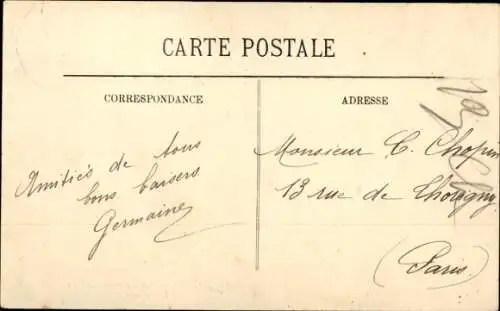 CARTE POSTALE
CORRESPONDANCE
ADRESSE
Amitiés de tous
bons baisers
Germaine
Monsieur C. Chopin
13 rue de Thorigny
(Paris)